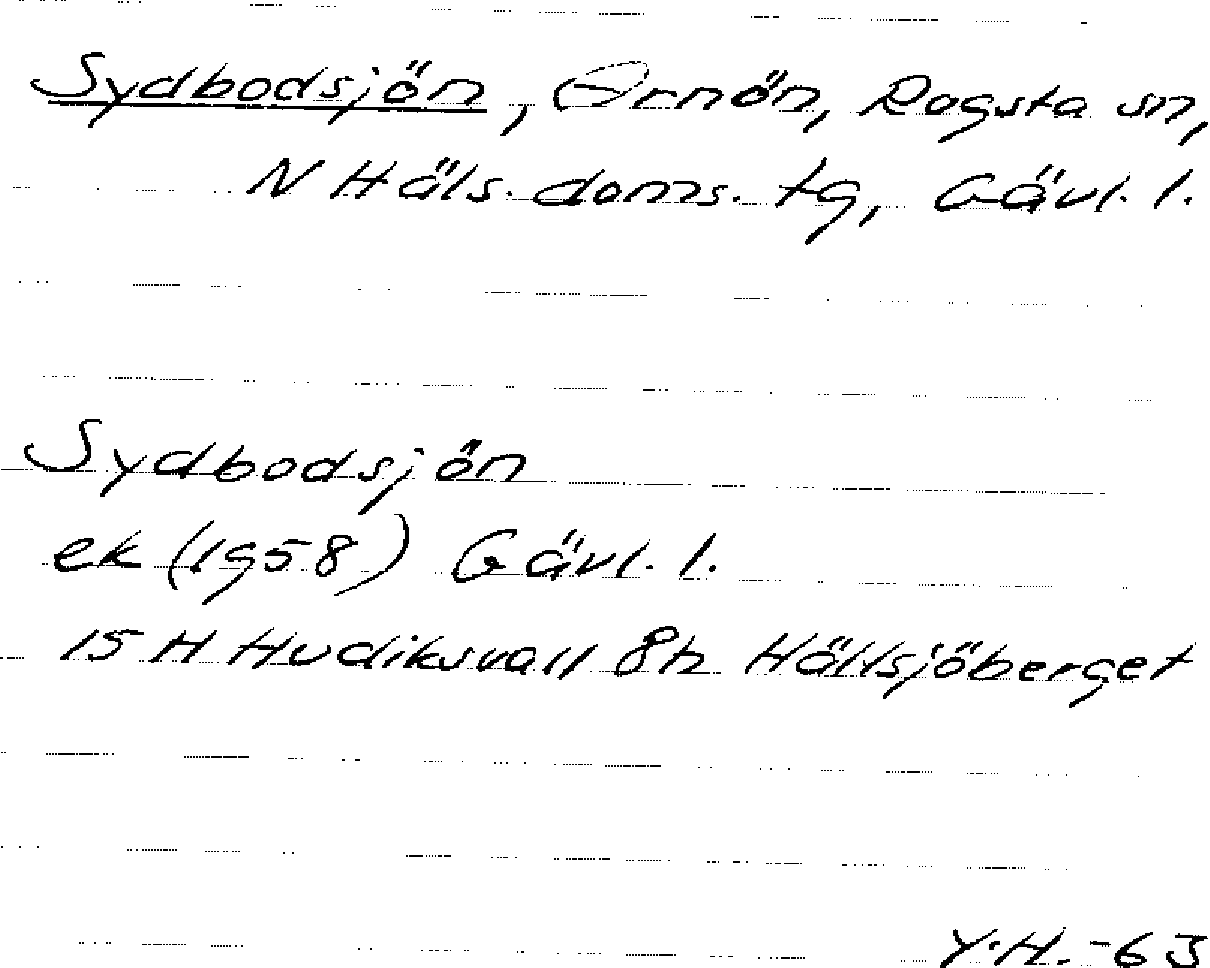 Sydbodsjön, Ornön, Rogsta sn,
N Häls. doms. tg, Gävl. l.
Sydbodsjön
ek (1958) Gävl. l.
15 H Hudiksvall 8h Hällsjöberget
Y.H.-63